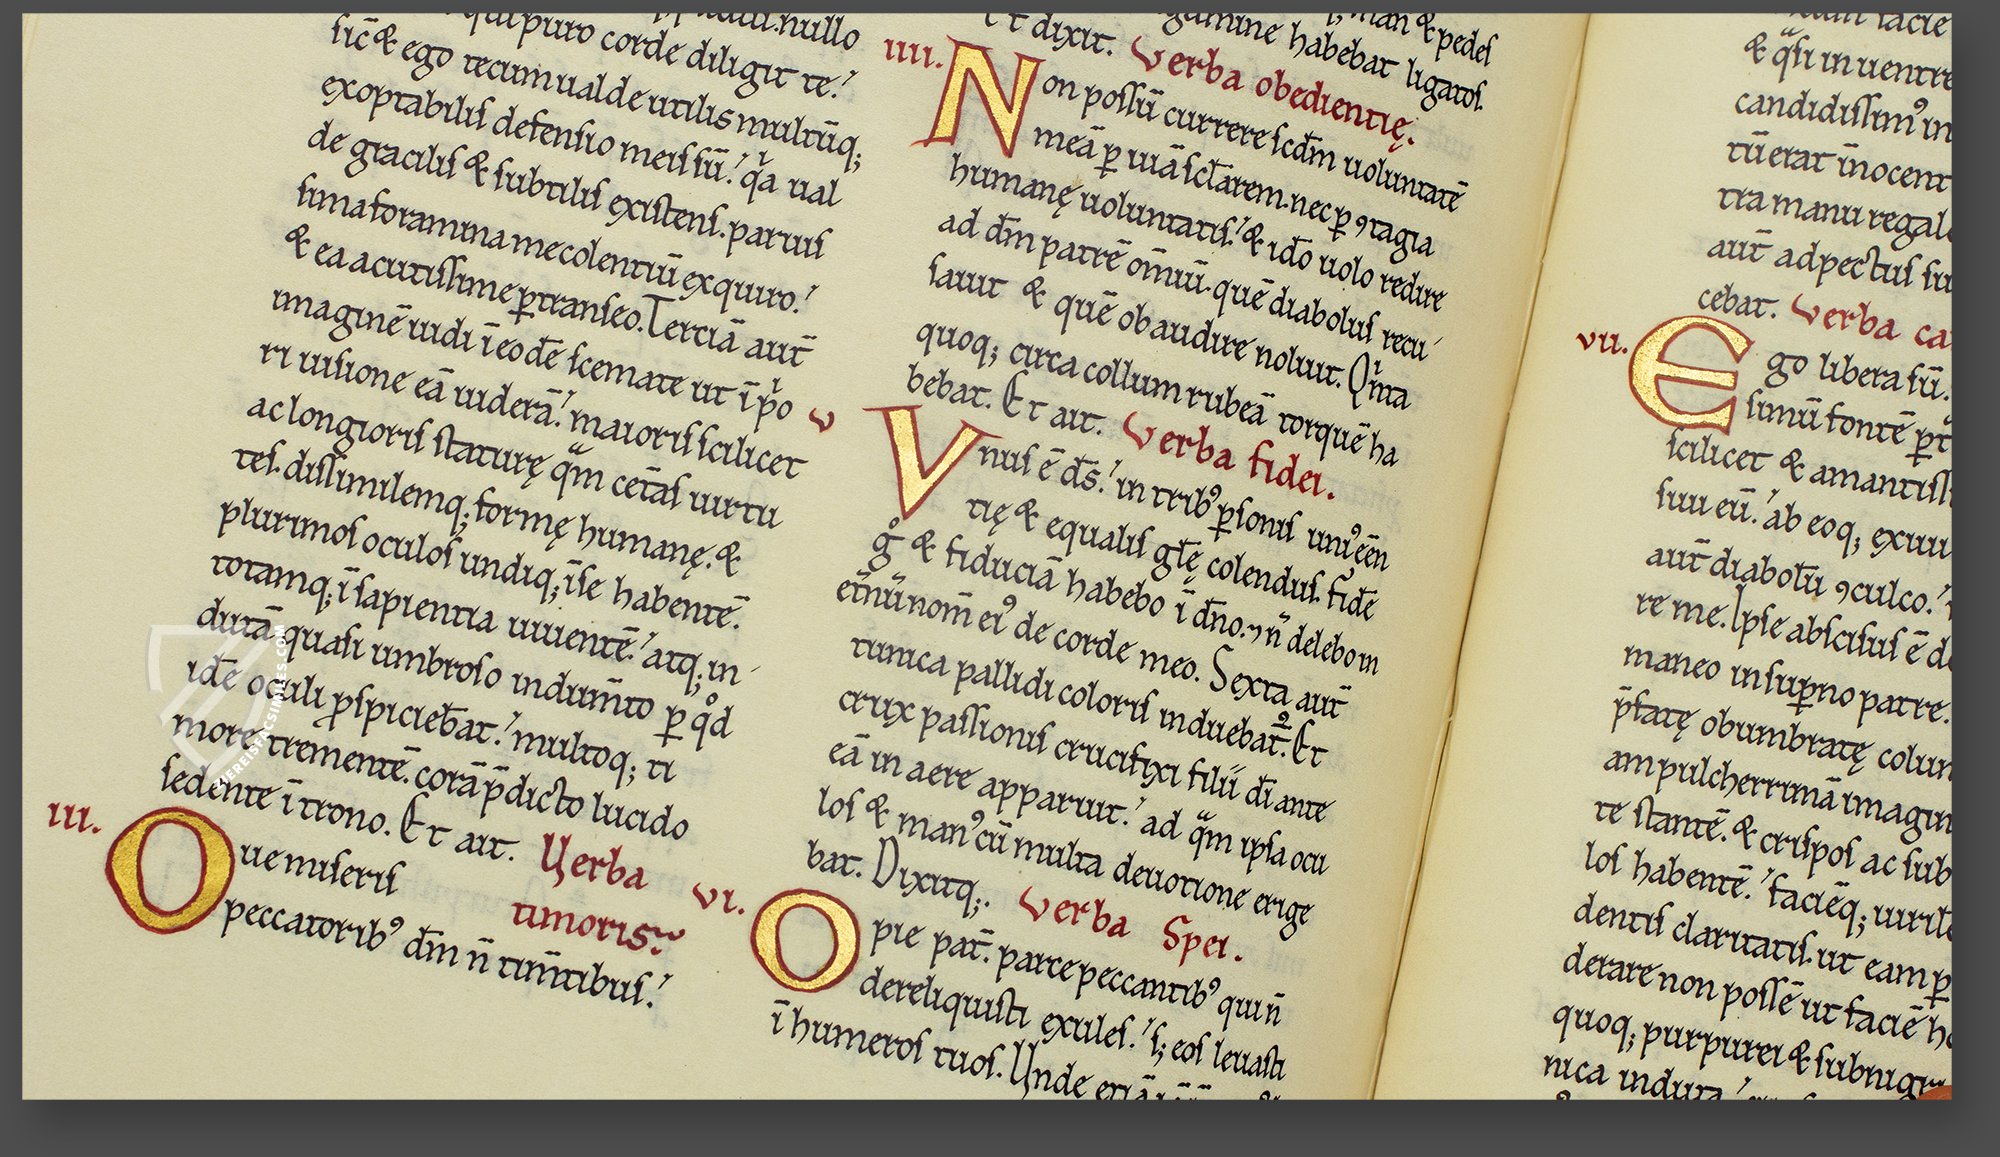 qui puro corde diligit te.
sic & ego tecum ualde utilis multūq;
exoptabilis defensio meis sū. qa ual
de gracilis & subtilis existens. paruis
sima foramina me colentiū exquiro.
& ea acutissime ꝑtranseo. Terciā aut̄
imaginē uidi ī eodē scemate ut ī po
ri uisione eā uiderā. maioris scilicet
ac longioris staturę qm cet̄as uirtu
tes. dissimilemq; formę humanę. &
plurimos oculos undiq; ī se habentē.
totamq; ī sapientia uiuentē. atq; in
dutā quasi umbroso indum̄to ꝑ qd
idē oculi ꝑspiciebat. multoq; ti
more trementē. corā p̄dicto lucido
sedente ī trono. Et ait. Verba
timoris.
III. O ue miseris
peccatoribꝰ dm̄ n̄ tim̄tibus.
man & pedes
gumine habebat ligatos.
Et dixit. Verba obedientię.
IIII. Non possū currere scdm̄ uoluntatē
meā ꝑ uiā sclarem. nec ꝑ ꝯtagia
humanę uoluntatis. & idō uolo redire
ad dm̄ patrē om̄iū. quē diabolus recu
sauit & quē obaudire noluit. Qinta
quoq; circa collum rubeā torquē ha
bebat. Et ait. Verba fidei.
V Vnus ē ds̄. in tribꝰ ꝑsonis uniꝰ eēn
tię & equalis glę colendus. Fidē
g° & fiduciā habebo ī dn̄o. ⁊ n̄ delebo in
et̄nū nom̄ eiꝰ de corde meo. Sexta aut̄
tunica pallidi coloris induebat̄. Et
crux passionis crucifixi filii dī ante
eā in aere apparuit. ad qm ipsa ocu
los & manꝰ cū multa deuotione erige
bat. Dixitq;. Verba Spei.
VI. O pie pat̄. parce peccantibꝰ qui n̄
dereliquisti exules. s; eos leuasti
ī humeros tuos. Unde etiā
facie
& qsi in uentre
candidissimꝰ in
tū erat īnocent
tra manu regal
aut̄ adpectus su
cebat. Verba ca
VII. Ego libera sū.
simū fontē
scilicet & amantiss
sui eū. ab eoq; exiui
aut̄ diabolū ꝯculco.
re me. Ipse abscisus ē d
maneo in suꝑno patre.
p̄fatę obumbratę colun
am pulcherrimā imagin
te stantē. & crispos ac sub
los habentē. faciēq; uiril
dentis claritatis. ut eam ꝑ
derare non possē ut faciē ho
quoq; purpurei & subnigr
nica induta.